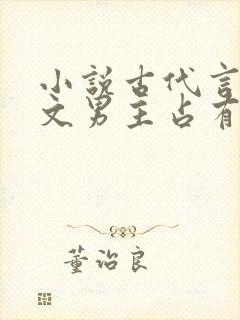 小说古代言
文男主占有
董治良